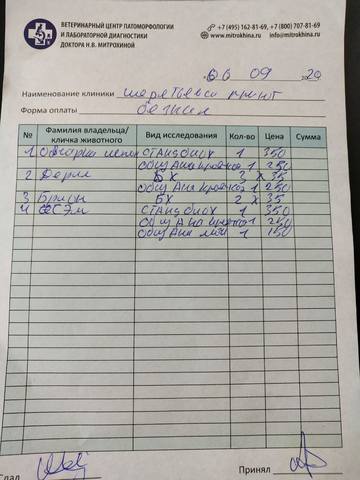 ВЕТЕРИНАРНЫЙ ЦЕНТР ПАТОМОРФОЛОГИИ
И ЛАБОРАТОРНОЙ ДИАГНОСТИКИ
ДОКТОРА Н.В. МИТРОХИНОЙ
+7 (495) 162-81-69, +7 (800) 707-81-69
www.mitrokhina.ru info@mitrokhina.ru
06 09 2020
Наименование клиники
Форма оплаты безнал
№ Фамилия владельца/ кличка животного Вид исследования Кол-во Цена Сумма
1 СТАНДБИОХ 1 350
общ Ан а кровь 1 250
2 БХ 3 х 35
общ Ан а кровь 1 250
3 БХ 2 х 35
4 СТАНДБИОХ 1 350
общ Ан а 1 250
общ Ан мочи 1 150
Сдал
Принял